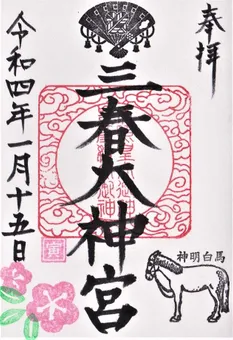 奉拝
三春大神宮
令和四年一月十五日
神明白馬
寅